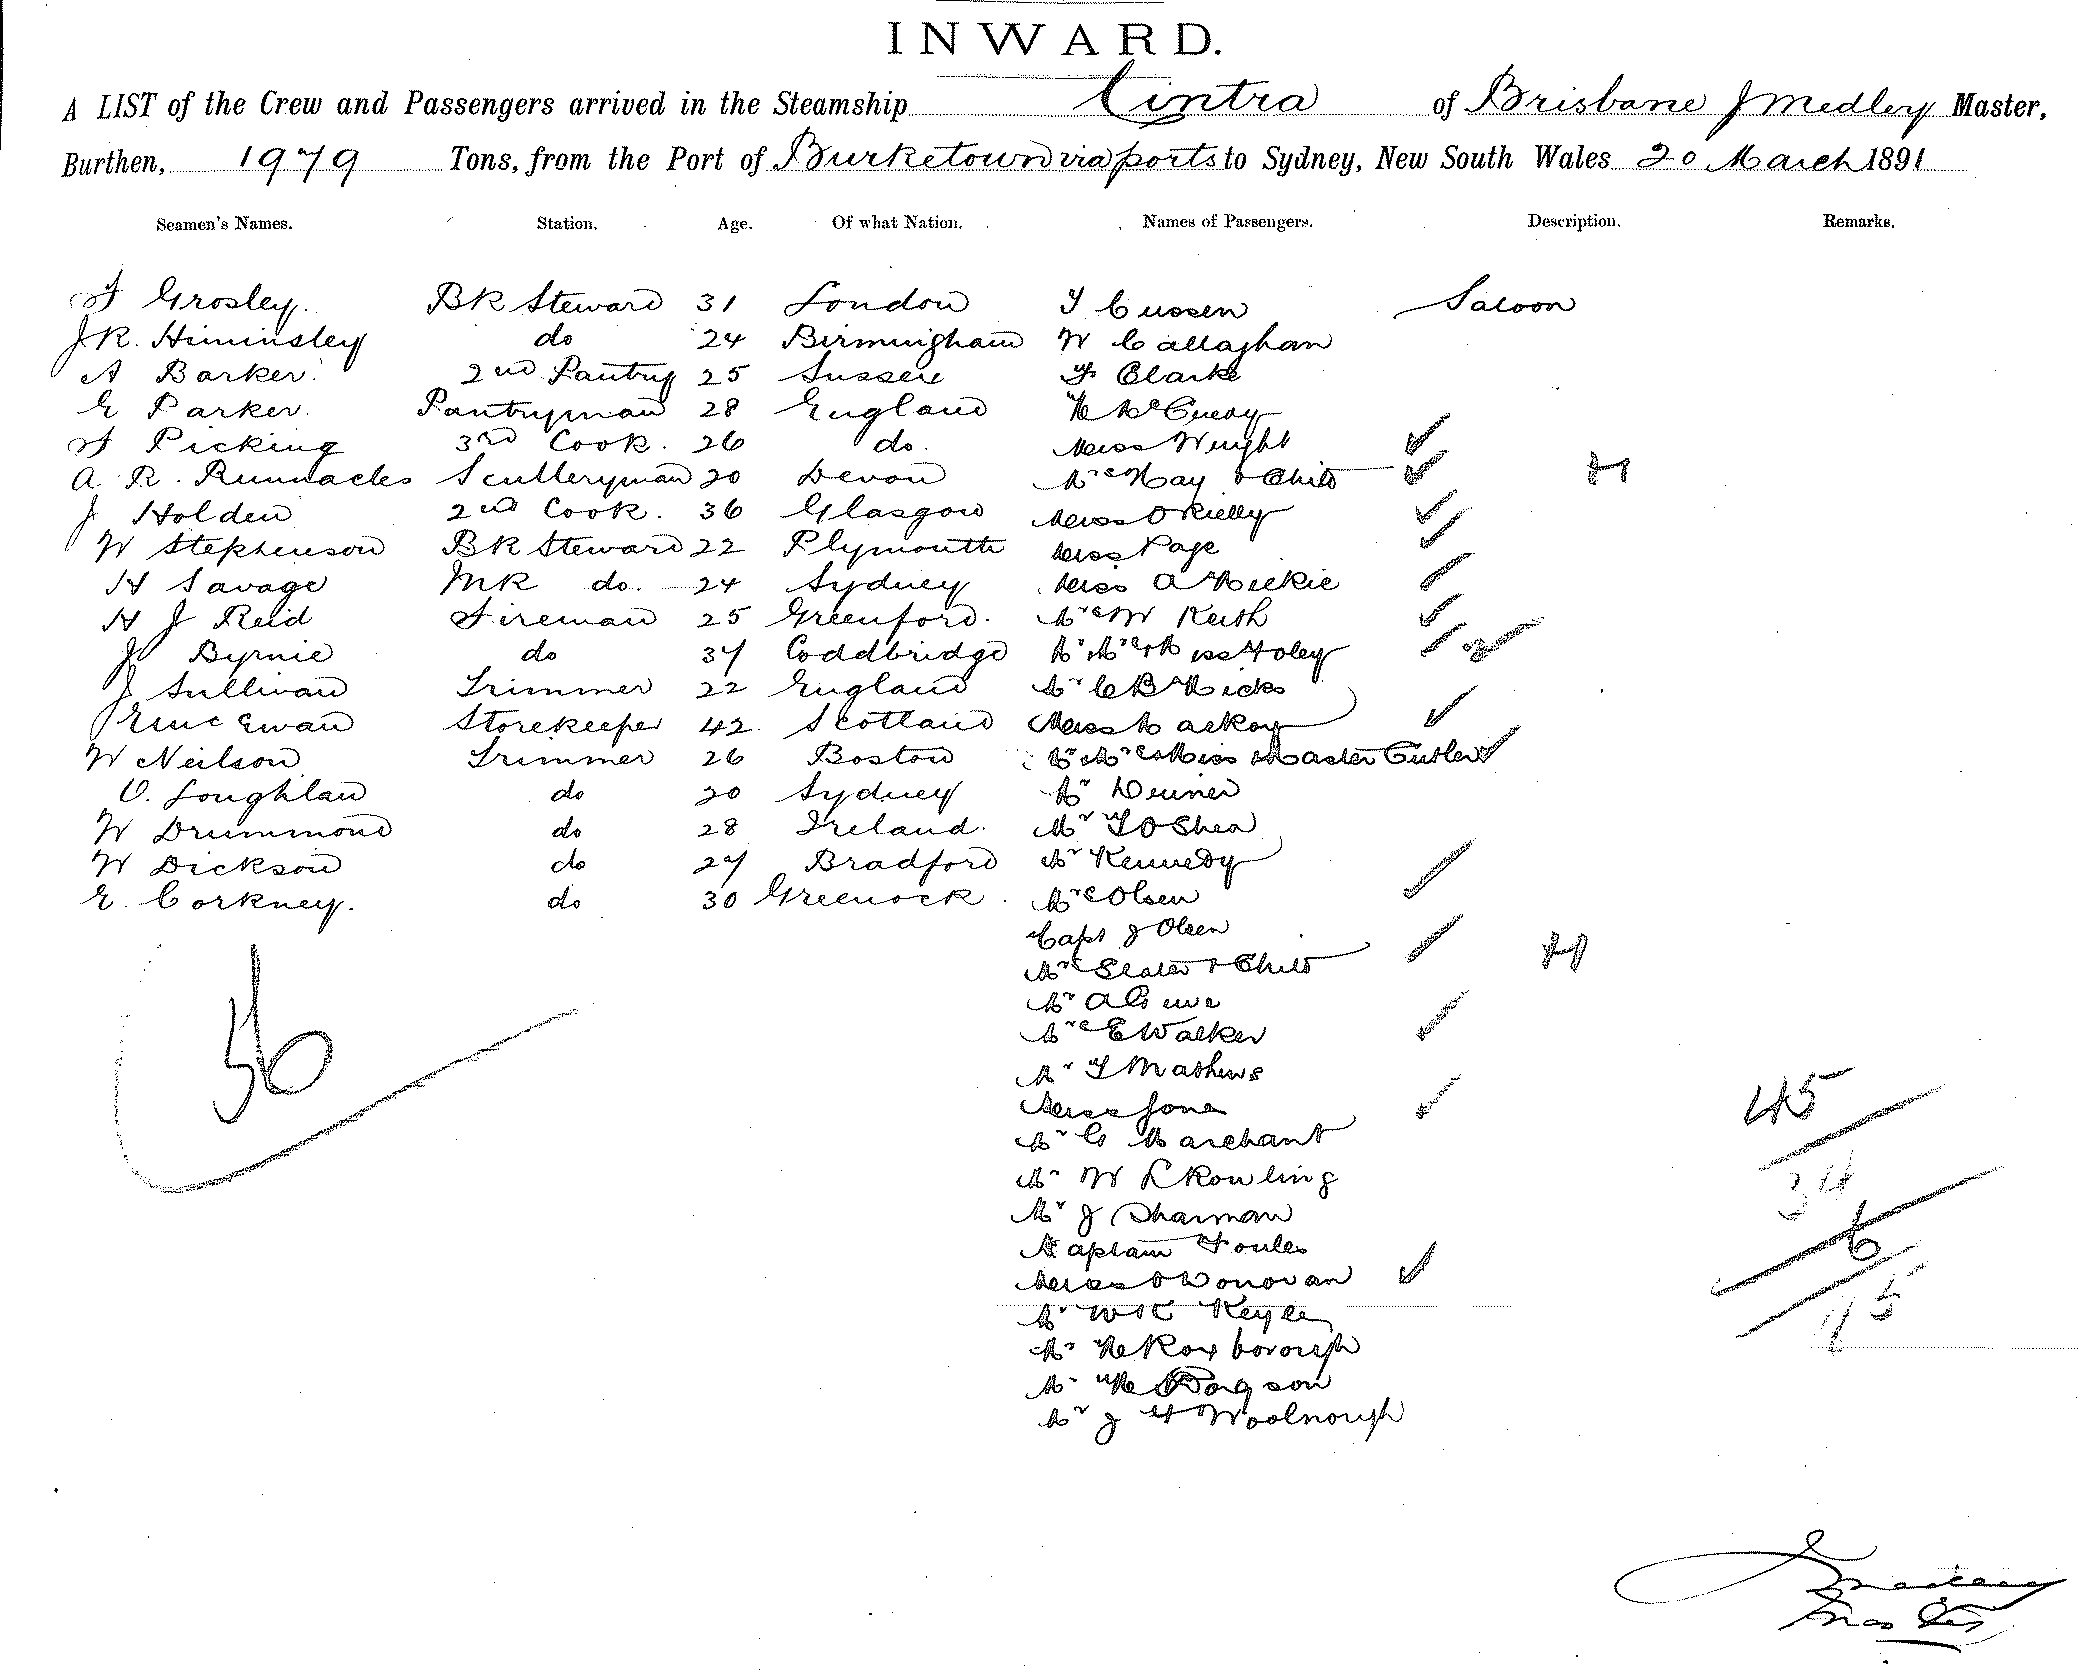 INWARD.
A LIST of the Crew and Passengers arrived in the Steamship Cintra of Brisbane J Medley Master,
Burthen, 1979 Tons, from the Port of Burketown via ports to Sydney, New South Wales 20 March 1891
Seamen's Names. Station. Age. Of what Nation. Names of Passengers. Description. Remarks.
F Grosley. BR Steward 31 London T Cussen Saloon
J R. Himinsley do 24 Birmingham W Callaghan
A Barker. 2nd Pantry 25 Sussex F Clarke
E Parker. Pantryman 28 England
F Picking 3rd Cook. 26 do. Miss Wright
A. R. Runnacles Sculleryman 20 Devon Mrs Hay & Child H
J Holden 2nd Cook. 36 Glasgow Miss O Rielly
W Stephenson BR Steward 22 Plymouth Miss Page
H Savage MR do. 24 Sydney Miss A Mickie
H J Reid Fireman 25 Greenford. Mrs W Keith
J Byrnie do 37 Coddbridge Mr Mrs & Miss Foley
J Sullivan Trimmer 22 England Mr C B Hicks
E McEwan Storekeeper 42 Scotland Miss Mackay
W Neilson Trimmer 26 Boston Mr Mrs & Miss Master Cutler
O. Loughlan do 20 Sydney Mr
W Drummond do 28 Ireland. Mr T O Shea
W Dickson do 27 Bradford Mr Kennedy
E. Corkney. do 30 Greenock Mrs Olsen
Capt J Olsen
Mrs Slater & Child H
Mr A
Mrs E Walker
Mr T Mathews
Miss Jones
Mr G Marchant
Mr W L Rowling
Mr J Sharman
Captain Foules
Miss O Donovan
Mr W H Keyle
Mr H Roxborough
Mr H
Mr J H Woolnough
56
45
34
6
45
J Medley
Master